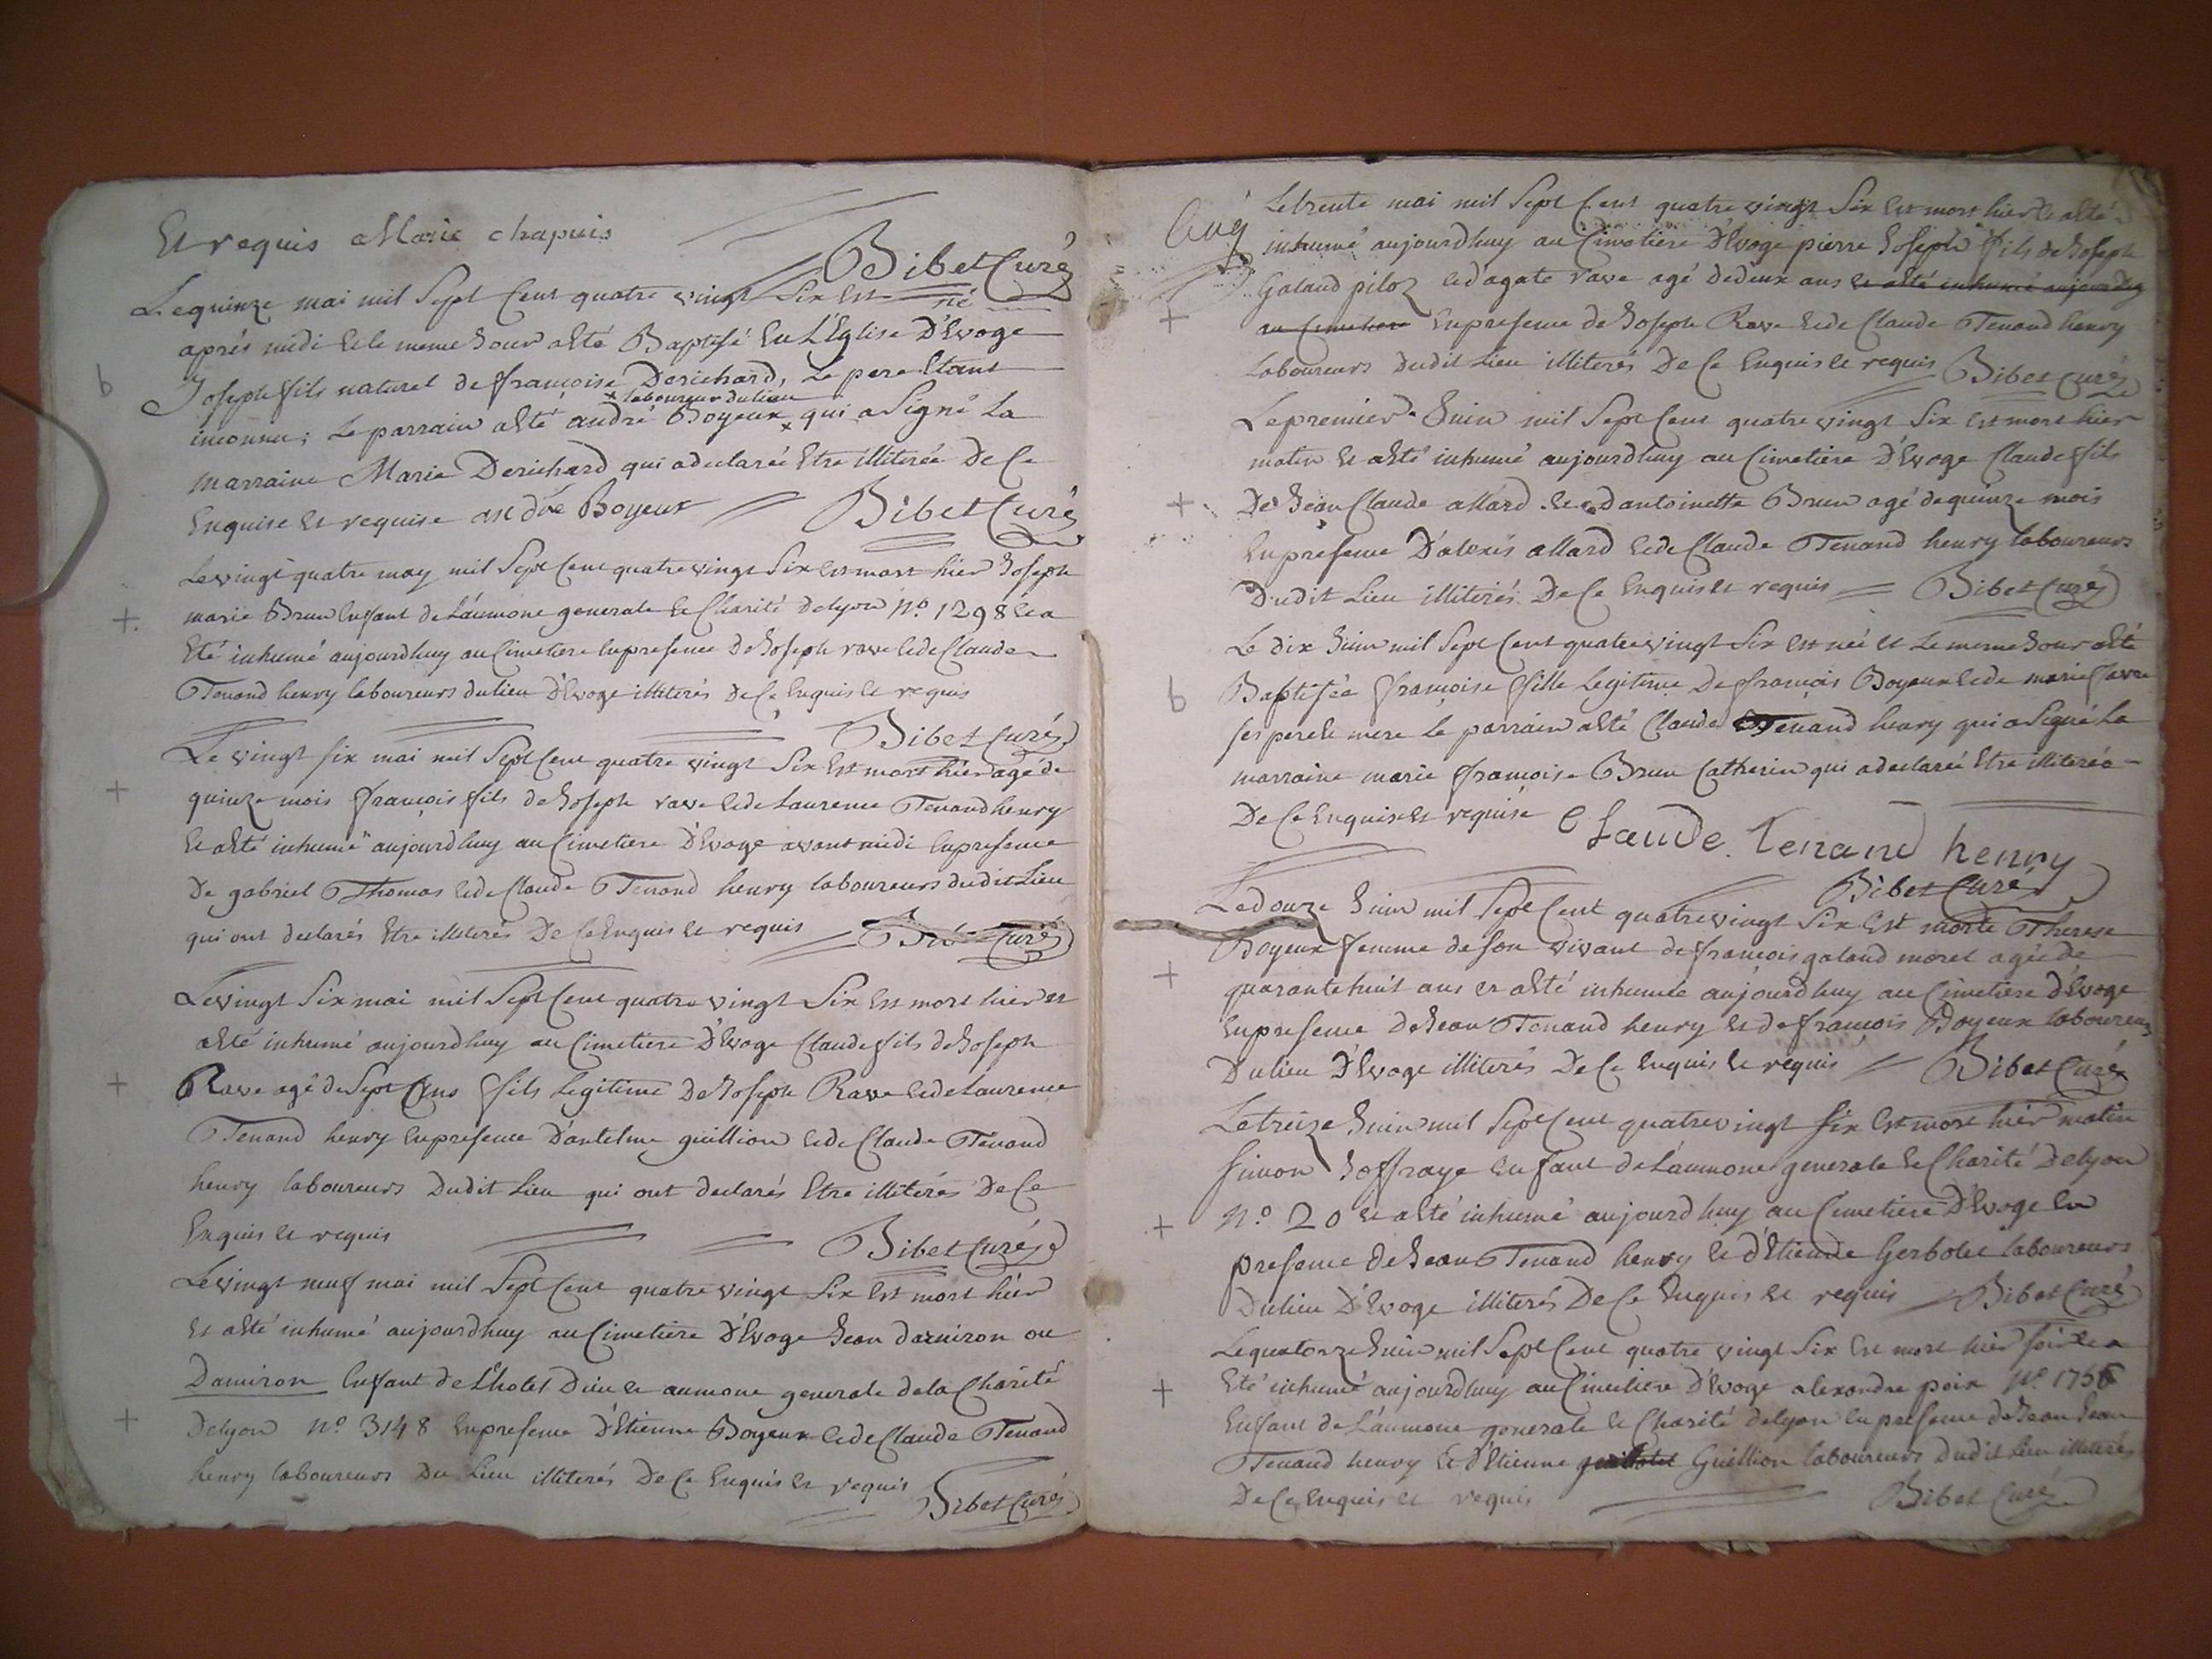 Et requis aMarie chapuis
Bibet Curé
Le quinze mai mil Sept Cent quatre vingt Six Est né
aprés midi et le meme Jour aété Baptisé En L'Eglise D'Evoge
b
Joseph fils naturel de françoise Derichard, Le pere Etant
x laboureur du lieu
inconnu; Le parrain aété andré Boyeux x qui a Signé La
marraine Marie Derichard qui adeclarée Etre illiterée De Ce
Enquise et requise an dré Boyeux Bibet Curé
Le vingt quatre may mil Sept Cent quatre vingt Six est mort hier Joseph
+ marie Brun Enfant de L'aumone generale et Charité de lyon No. 1298 et a
Eté inhumé aujourdhuy au Cimetiere En presence de Joseph rave et de Claude
Tenand henry laboureurs du lieu D'Evoge illiterés De Ce Enquis et requis
Bibet Curé
Le vingt six mai mil Sept Cent quatre vingt Six Est mort hier agé de
+ quinze mois françois fils de Joseph rave et de Laurence Tenand henry
et aété inhumé aujourdhuy au Cimetiere D'Evoge avant midi En presence
De gabriel Thomas et de Claude Tenand henry laboureurs dudit Lieu
qui ont declarés Etre illiterés De Ce Enquis et requis Bibet Curé
Le vingt Six mai mil Sept Cent quatre vingt Six Est mort hier et
aété inhumé aujourdhuy au Cimetiere D'Evoge Claude fils de Joseph
+ Rave agé de Sept Ans fils Legitime De Joseph Rave et de Laurence
Tenand henry En presence D'antelme guillion et de Claude Tenand
henry laboureurs Dudit Lieu qui ont declarés Etre illiterés De Ce
Enquis et requis Bibet Curé
Le vingt neuf mai mil Sept Cent quatre vingt Six Est mort hier
Et aété inhumé aujourdhuy au Cimetiere D'Evoge Jean darniron ou
Damiron Enfant de L'hotel Dieu et aumone generale de la Charité
+ De lyon No. 3148 En presence D'Etienne Boyeux et de Claude Tenand
henry laboureurs Du Lieu illiterés De Ce Enquis et requis
Bibet Curé
Le trente mai mil Sept Cent quatre vingt Six Est mort hier et aété
inhumé aujourdhuy au Cimetiere D'Evoge pierre Joseph fils de Joseph
Galand piloz et d'agate rave agé de deux ans et aété inhumé aujourdhuy
+ au Cimetiere En presence de Joseph Rave et de Claude Tenand henry
laboureurs Dudit Lieu illiterés De Ce Enquis et requis Bibet Curé
Le premier Juin mil Sept Cent quatre vingt Six Est mort hier
matin et aété inhumé aujourdhuy au Cimetiere D'Evoge Claude fils
+ De Jean Claude allard et d'antoinette Brun agé de quinze mois
En presence D'alexis allard et de Claude Tenand henry laboureurs
Dudit Lieu illiterés De Ce Enquis et requis Bibet Curé
Le dix Juin mil Sept Cent quatre vingt Six est née et Le meme Jour aété
b Baptisée françoise fille Legitime De françois Boyeux et de marie
ses pere et mere Le parrain aété Claude Tenand henry qui a Signé La
marraine marie françoise Brun Catherin qui adeclarée Etre illiterée
De Ce Enquise et requise Claude Tenand henry
Bibet Curé
Le douze Juin mil Sept Cent quatre vingt Six Est morte Therese
Boyeux femme de son vivant de françois galand moret agée de
+ quarante huit ans et aété inhumée aujourdhuy au Cimetiere D'Evoge
En presence De Jean Tenand henry et de françois Boyeux laboureurs
Du lieu D'Evoge illiterés De Ce Enquis et requis Bibet Curé
Le treize Juin mil Sept Cent quatre vingt six Est mort hier matin
simon Joffraye Enfant de L'aumone generale et Charité De lyon
+ No. 20 et aété inhumé aujourdhuy au Cimetiere D'Evoge En
presence de Jean Tenand henry et d'Etienne Gerbolet laboureurs
Du lieu D'Evoge illiterés De Ce Enquis et requis Bibet Curé
Le quatorze Juin mil Sept Cent quatre vingt Six Est mort hier soir et a
+ Eté inhumé aujourdhuy au Cimetiere D'Evoge alexandre poix No. 1756
Enfant de L'aumone generale et Charité de lyon En presence de Jean Jean
Tenand henry Et d'Etienne Guillion laboureurs Dudit Lieu illiterés
De Ce Enquis et requis Bibet Curé